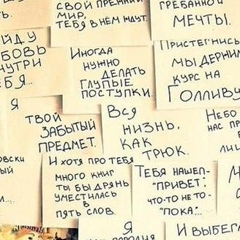 СВОЙ ПРЕЖНИЙ
МИР,
ТЕБЯ В НЁМ ИЩУТ.
ГРЕБАННОЙ
МЕЧТЫ.
ЙДУ
БОВЬ
НУТРИ
ЕБЯ...
Иногда
нужно
ДЕЛАТЬ
ГЛУПЫЕ
ПОСТУПКИ.
Пристегнись
МЫ ДЕРЖИМ
КУРС НА
Голливу
Я
ТВОЙ
ЗАБЫТЫЙ
ПРЕДМЕТ.
Вся
ЖИЗНЬ,
КАК
ТРЮК.
НЕБО
НАС
ПР
ОВСКИ
ЫЙ
И ХОТЯ ПРО ТЕБЯ
МНОГО КНИГ
ТЫ БЫ ДРЯНЬ
УМЕСТИЛАСЬ
В
ПЯТЬ СЛОВ.
ТЕБЯ НАШЕП-
"ПРИВЕТ",
ЧТО-ТО НЕ ТО-
"ПОКА"...
Я
И ВЫБЕГА